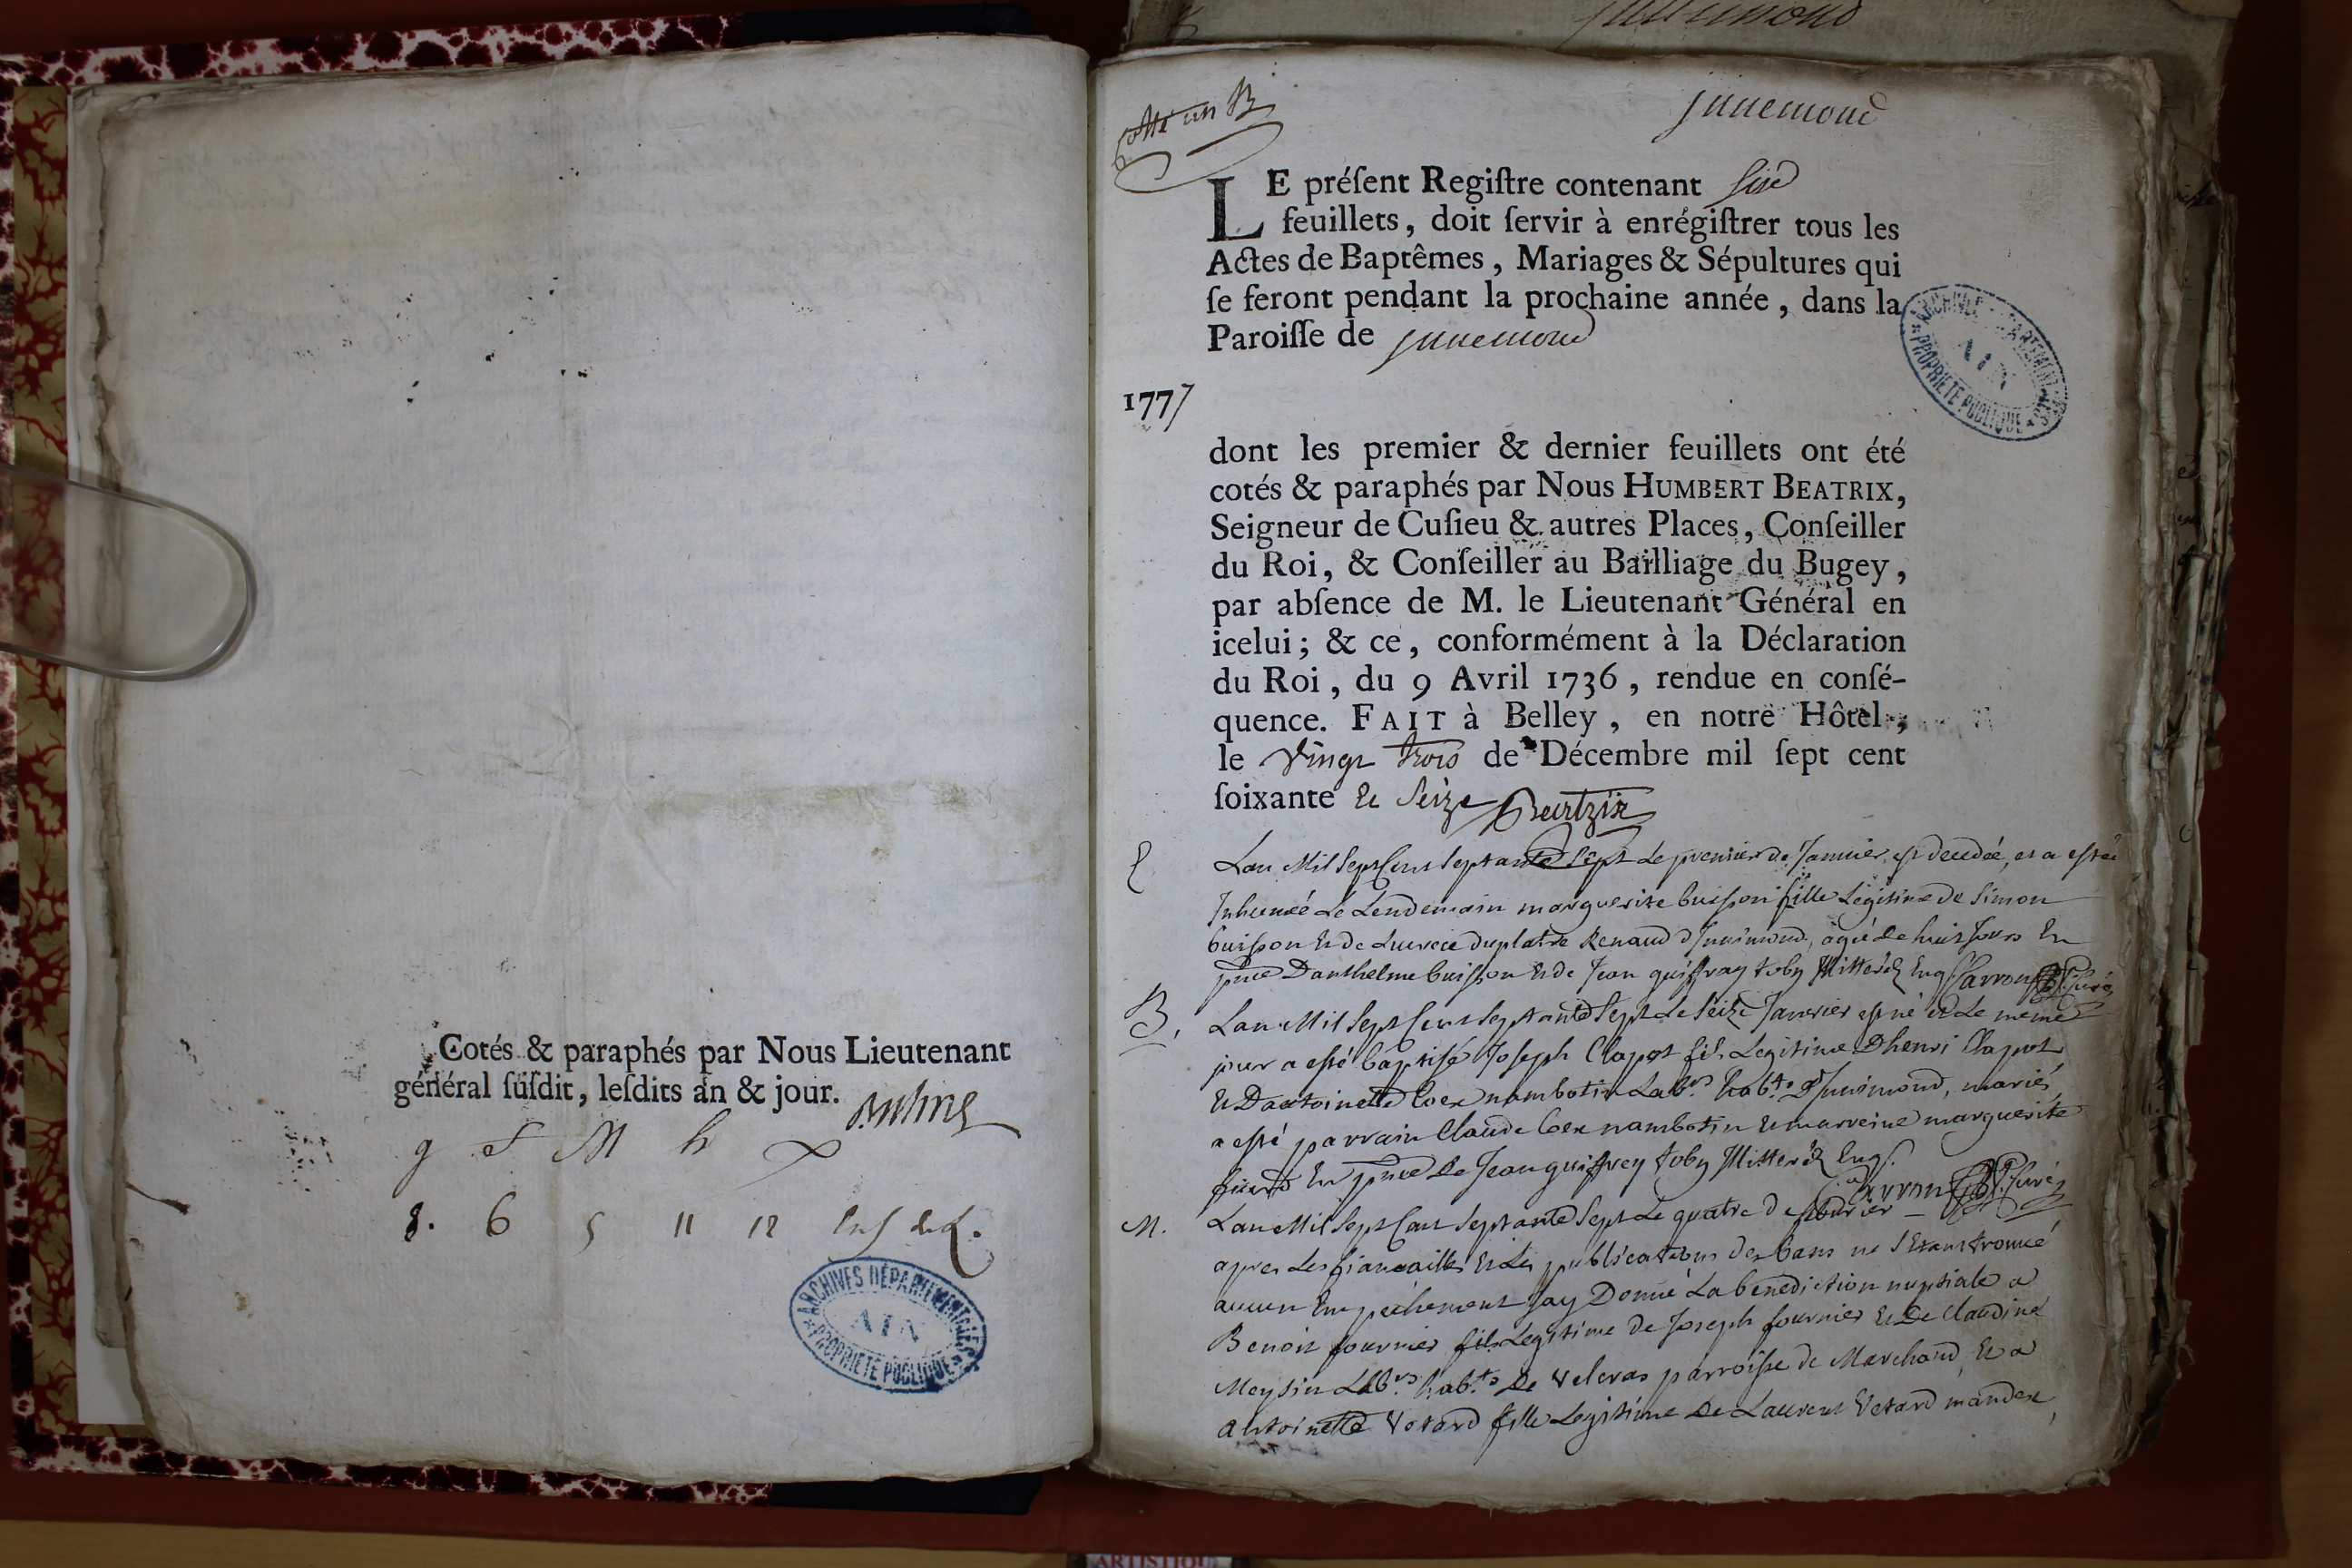 Cotés & paraphés par Nous Lieutenant
général ſuſdit, leſdits an & jour.
g f M h
8. 6 5 11 12
ARCHIVES DÉPARTEMENTALES
AIN
PROPRIÉTÉ PUBLIQUE
Cotte un B
Innemond
LE préſent Regiſtre contenant six
feuillets, doit ſervir à enrégiſtrer tous les
Actes de Baptêmes, Mariages & Sépultures qui
ſe feront pendant la prochaine année, dans la
Paroiſſe de Innemond
ARCHIVES DÉPARTEMENTALES
AIN
PROPRIÉTÉ PUBLIQUE
1777
dont les premier & dernier feuillets ont été
cotés & paraphés par Nous HUMBERT BEATRIX,
Seigneur de Cuſieu & autres Places, Conſeiller
du Roi, & Conſeiller au Bailliage du Bugey,
par abſence de M. le Lieutenant Général en
icelui; & ce, conformément à la Déclaration
du Roi, du 9 Avril 1736, rendue en conſé-
quence. FAIT à Belley, en notre Hôtel,
le vingt trois de Décembre mil ſept cent
ſoixante et seize Beatrix
Lan Mil Sept Cent Septante Sept Le premier de Janvier est decedée, et a esté
Inhumée Le Lendemain marguerite buisson fille Légitime de Simon
buisson et de Lucrece duplatre Renaud d'Innimond, agée de huit Jours En
pnce Danthelme buisson et de Jean guiffray toby Illitterés Enqs Carron Curé
B. Lan Mil Sept Cent Septante Sept Le Seize Janvier est né et Le meme
jour a esté baptisé Joseph Clapot fils Legitime Dhenri Clapot
et Dantoinette Coex nambotin Labrs habts D'Innimond, mariés
a esté parrain Claude Coex nambotin et marreine marguerite
En pnce de Jean guiffrey toby Illitterés Enqs.
Carron Curé
M. Lan Mil Sept Cent Septante Sept Le quatre de febvrier
apres Les fiancailles et Les publications des bans ne S'Etant trouvé
aucun Empechement Jay Donné La benediction nuptiale a
Benoit fournier fils Legitime de Joseph fournier et De Claudine
Meysin Labrs habts De Veleras parroisse de Marchand et a
Antoinette Votard fille Legitime De Laurent Votard mandex
ARTISTIQU